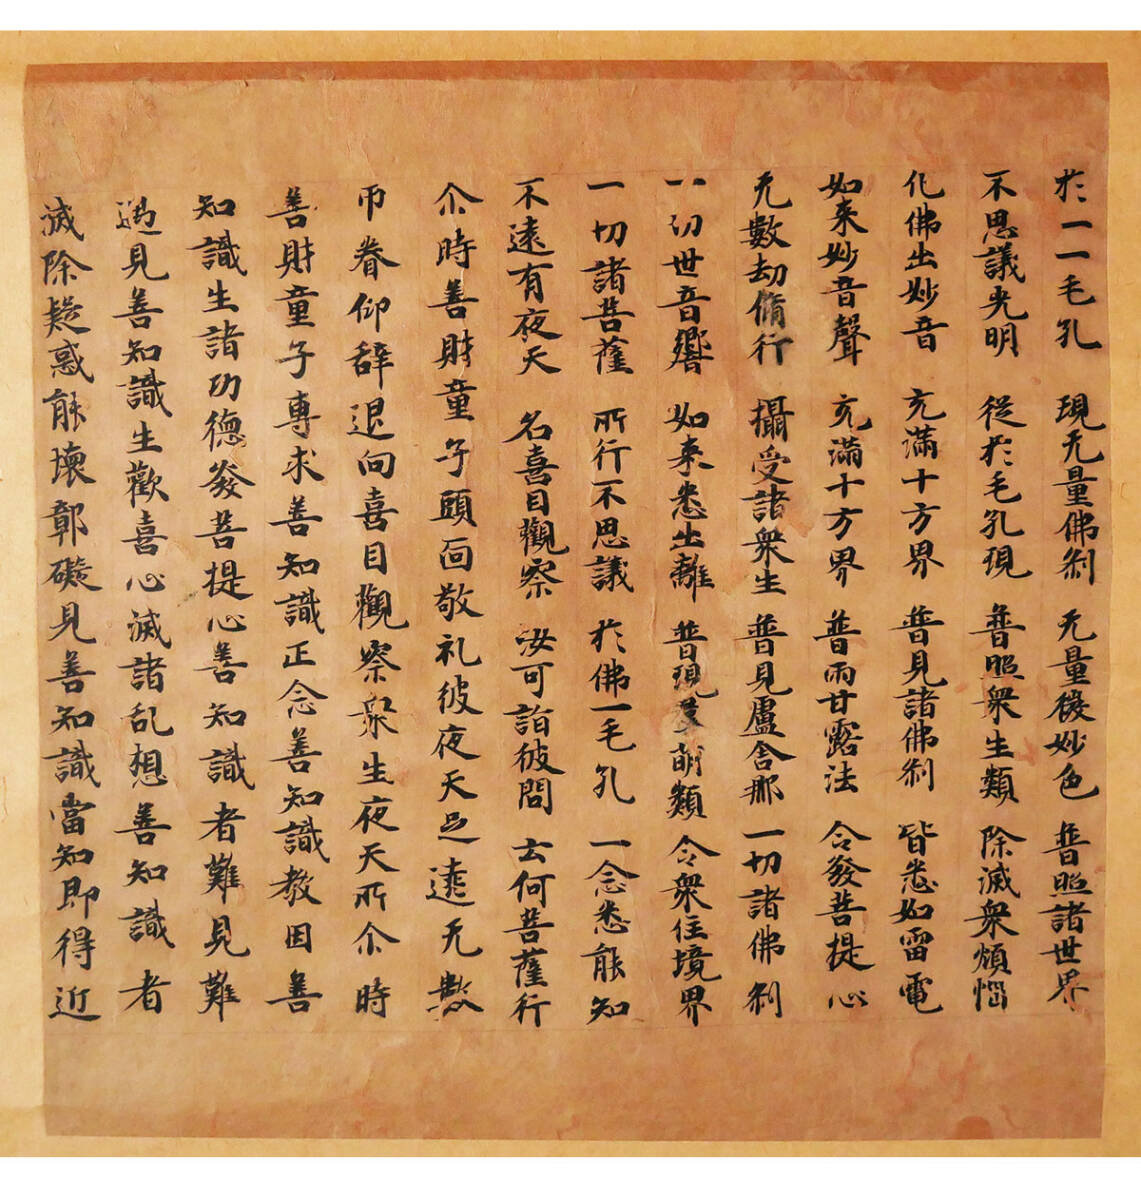 於一一毛孔 現无量佛刹 无量後妙色 普照諸世界
不思議光明 從於毛孔現 普照衆生類 除滅衆煩惱
化佛出妙音 充滿十方界 普見諸佛刹 皆悉如雷電
如来妙音聲 充滿十方界 普雨甘露法 令發菩提心
无數劫脩行 攝受諸衆生 普見盧舍那 一切諸佛刹
一切世音響 如来悉出離 普現 萌類 令衆住境界
一切諸菩薩 所行不思議 於佛一毛孔 一念悉能知
不遠有夜天 名喜目觀察 汝可詣彼問 云何菩薩行
尒時善財童子頭面敬礼彼夜天足遶无數
帀眷仰辞退向喜目觀察衆生夜天所尒時
善財童子專求善知識正念善知識教因善
知識生諸功德發菩提心善知識者難見難
遇見善知識生歡喜心滅諸乱想善知識者
滅除疑惑能壞鄣礙見善知識當知即得近